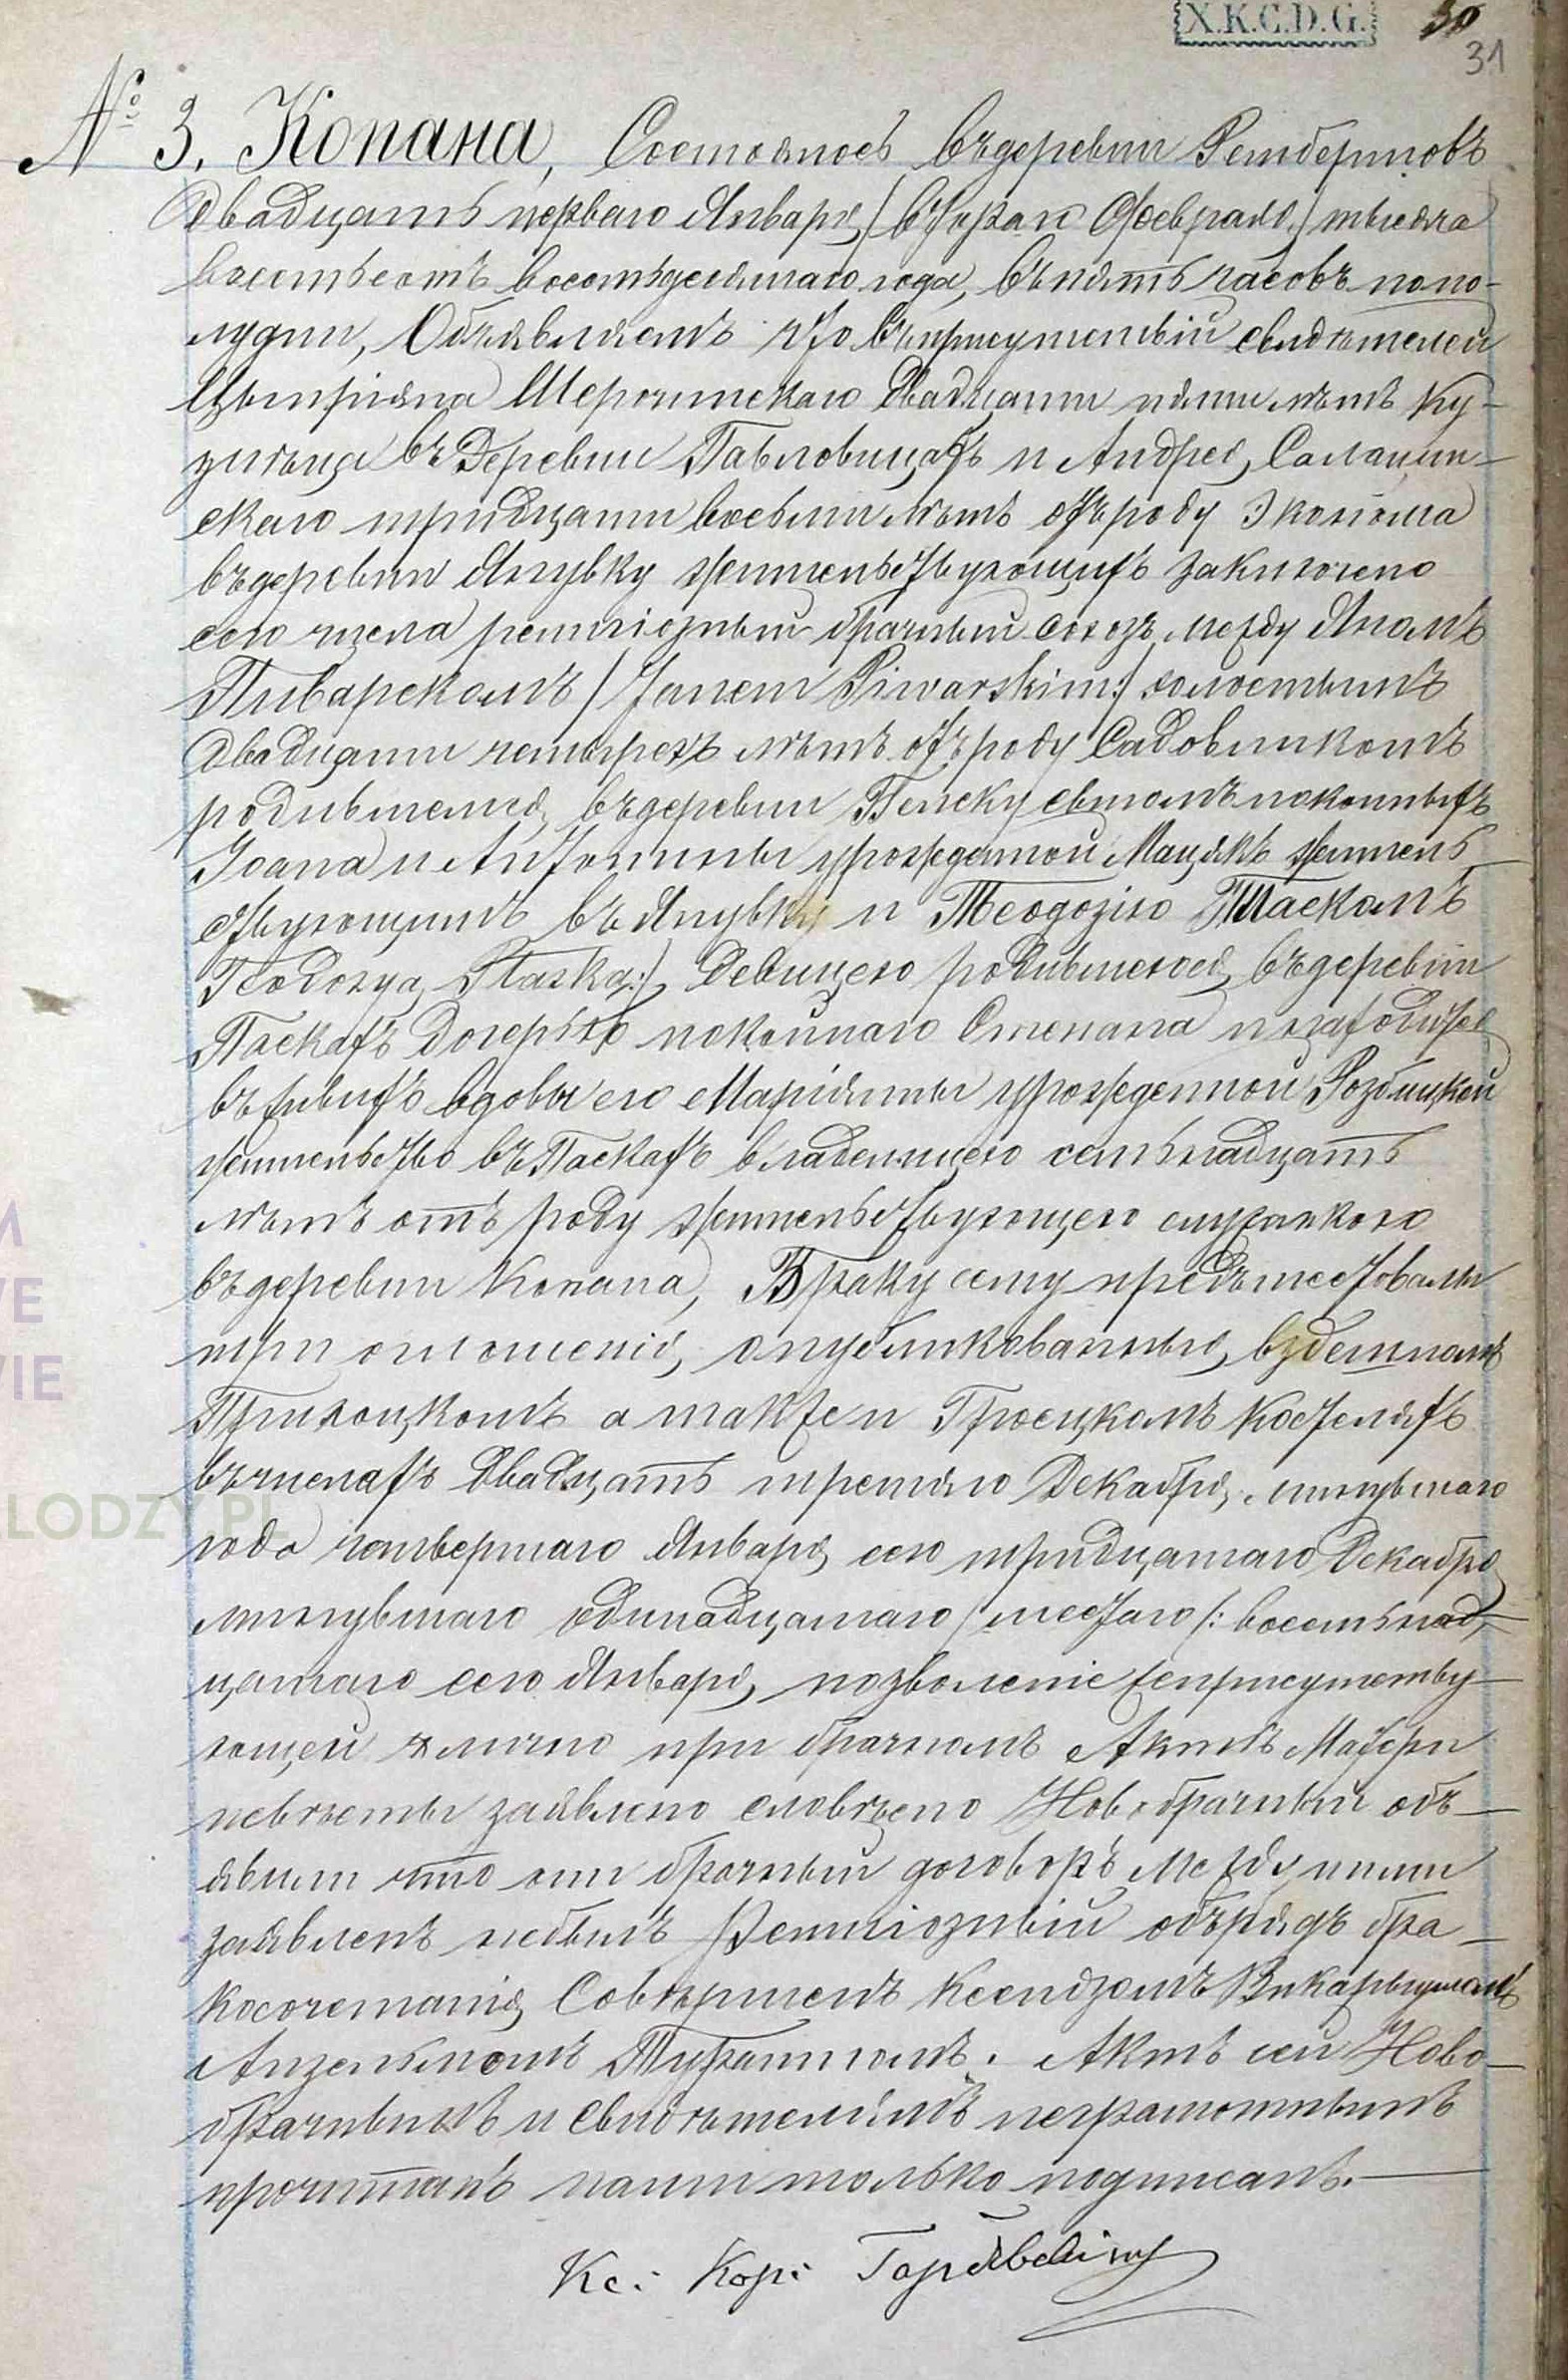 X.K.C.D.G. 30
31
№ 3. Копана, Состоялось въ деревни Рембертовъ
двадцать перваго Января /втораго Февраля/ тысяча
восемьсотъ восемьдесятаго года, въ пять часовъ попо-
лудни, Объявляемъ что въ присутствіи свидѣтелей
Цыпріяна двадцати пяти лѣтъ Ку-
знѣца въ Деревни Павловицахъ и Андрея
скаго тридцати восьми лѣтъ отъ роду Эконома
въ деревни Янувку жительствующихъ заключено
сего числа религіозный брачный союзъ между Яномъ
Пиварскомъ /Janem Piwarskim:/ холостымъ
двадцати четырехъ лѣтъ отъ роду Садовникомъ
родившемся въ деревни сыномъ покойныхъ
Іоана и Антонины урожденной Мацякъ житель-
ствующимъ въ Янувку и Теодозію Птаскомъ
Teodozyą Ptaską:/ Девицею родившеюся въ деревни
Паскахъ дочерью покойнаго Степана и находится
въ живыхъ вдовы его Маріянны урожденной
жительство въ Паскахъ владеющею семьнадцать
лѣтъ отъ роду жительствующею служанкою
въ деревни Копана, Браку сему предъшествовали
три оглошенія опубликованныя вздешномъ
Прихоцкомъ а также и Гроецкомъ костеляхъ
въ числахъ двадцать третяго Декабря минувшаго
года четвертаго Января сего тридцатаго Декабря
минувшаго одинадцатаго /шестаго/: восемьнад-
цатаго сего Января, позволеніе неприсутству-
ющей лично при брачномъ Актѣ Матери
невѣсты заявлено словѣсно Новобрачный объ-
явили что они брачный договоръ между ними
заявленъ небылъ Религіозный обърядъ бра-
косочетанія Совѣршенъ Ксендзомъ Викарыушомъ
Анзельмомъ Акть сей Ново-
брачнымъ и Свидѣтелямъ неграмотнымъ
прочитанъ нами только подписанъ.
Кс: Кор:
M
WE
WIE
LODZY.PL